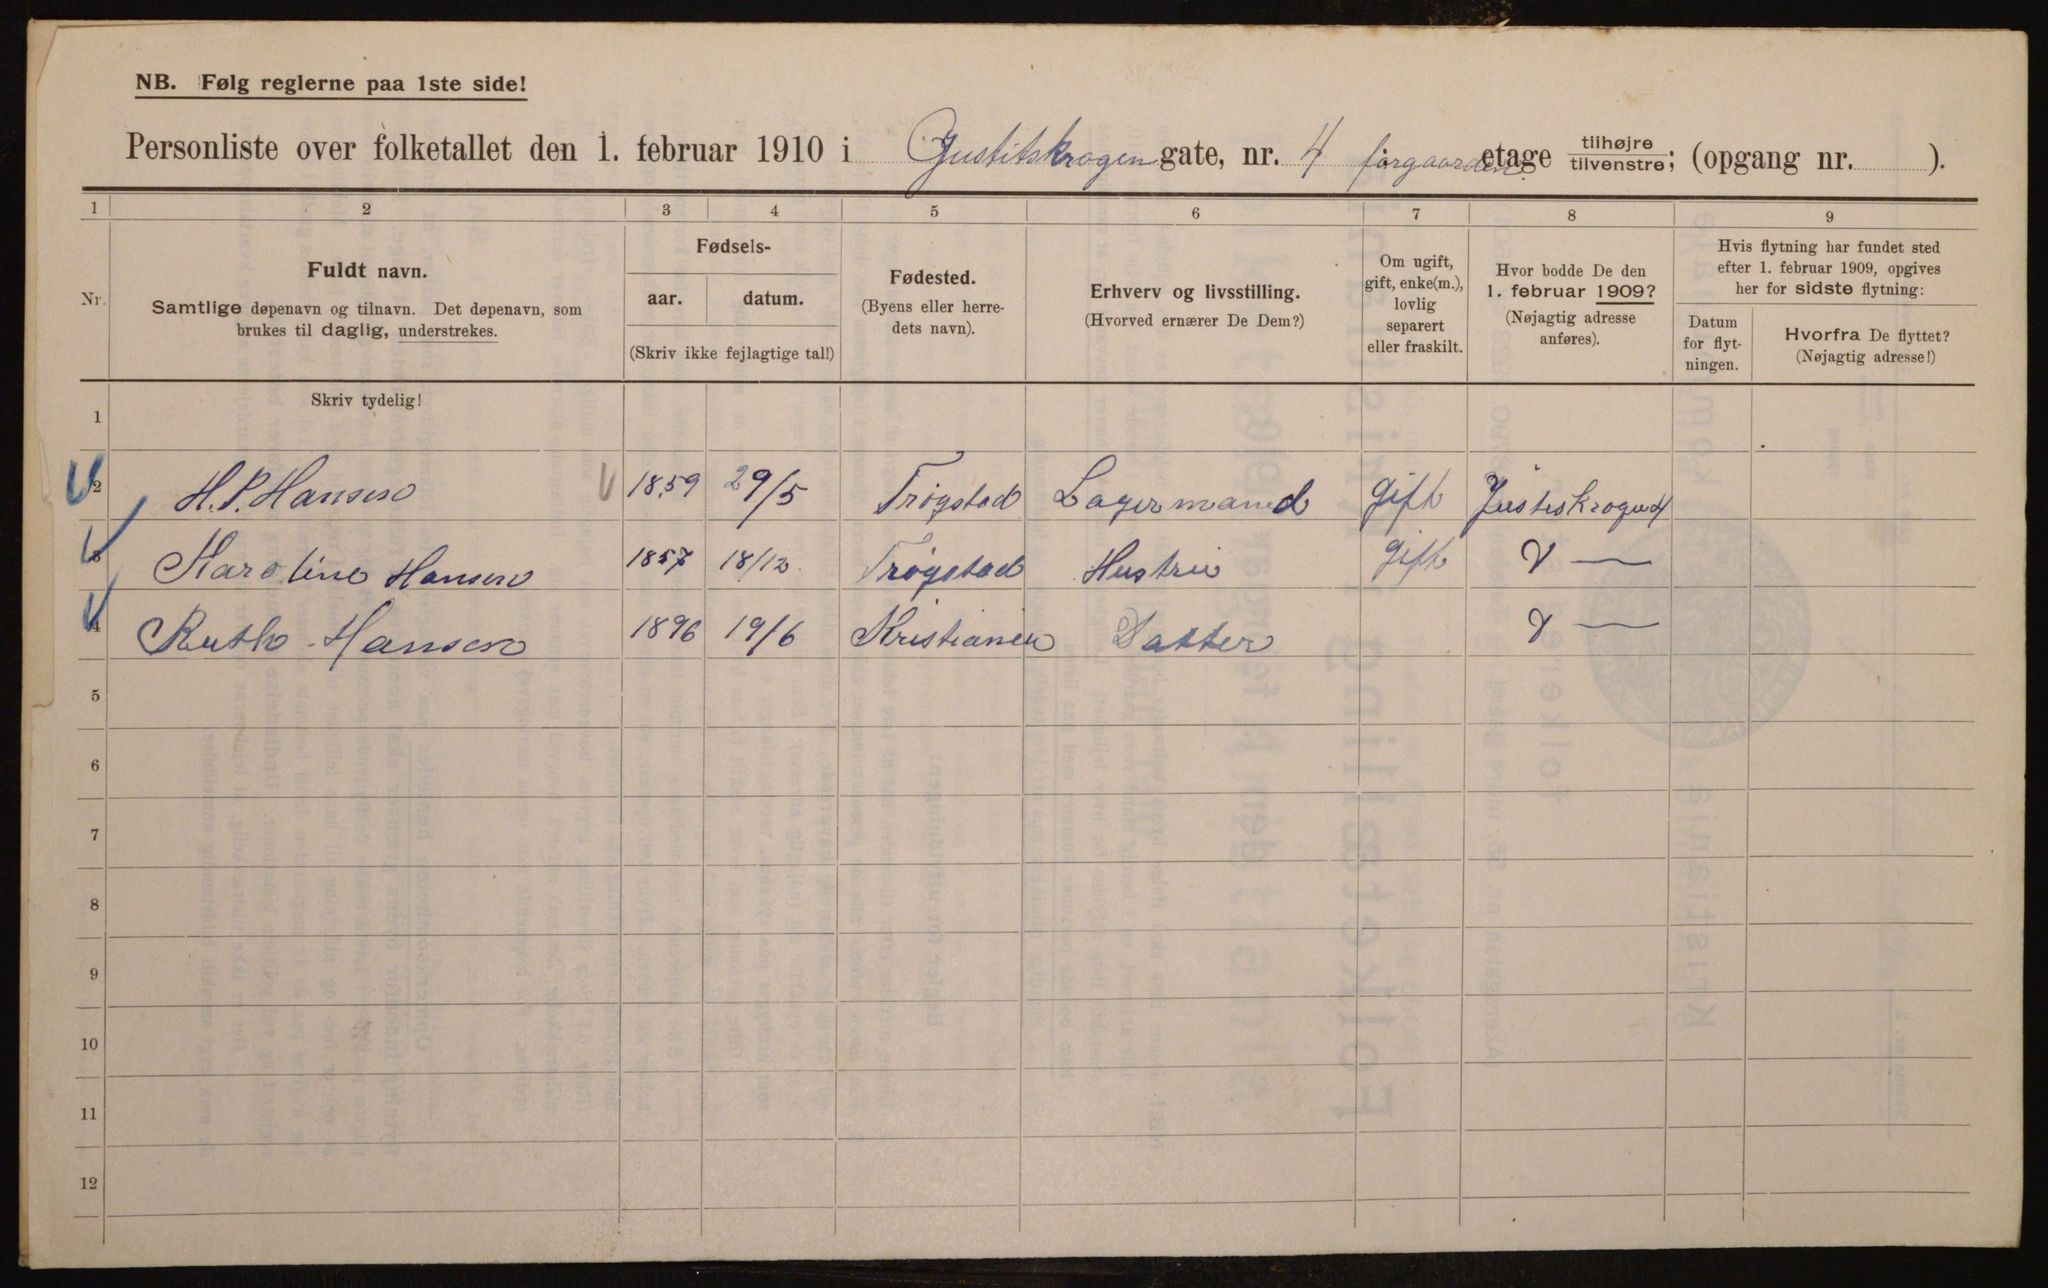 NB. Følg reglerne paa 1ste side!
Personliste over folketallet den 1. februar 1910 i Justitskrogen gate, nr. 4 forgaarden etage tilhøjre/tilvenstre; (opgang nr. ).
1 2 3 4 5 6 7 8 9
Nr.
Fuldt navn.
Samtlige døpenavn og tilnavn. Det døpenavn, som
brukes til daglig, understrekes.
Skriv tydelig!
Fødsels-
aar. datum.
(Skriv ikke fejlagtige tal!)
Fødested.
(Byens eller herre-
dets navn).
Erhverv og livsstilling.
(Hvorved ernærer De Dem?)
Om ugift,
gift, enke(m.),
lovlig
separert
eller fraskilt.
Hvor bodde De den
1. februar 1909?
(Nøjagtig adresse
anføres).
Hvis flytning har fundet sted
efter 1. februar 1909, opgives
her for sidste flytning:
Datum
for flyt-
ningen.
Hvorfra De flyttet?
(Nøjagtig adresse!)
1
2 H. P. Hansen 1859 29/5 Trøgstad Lagermand gift Justiskrogen 4
3 Karoline Hansen 1857 18/12 Trøgstad Hustru gift
4 Ruth Hansen 1896 19/6 Kristiania Datter
5
6
7
8
9
10
11
12